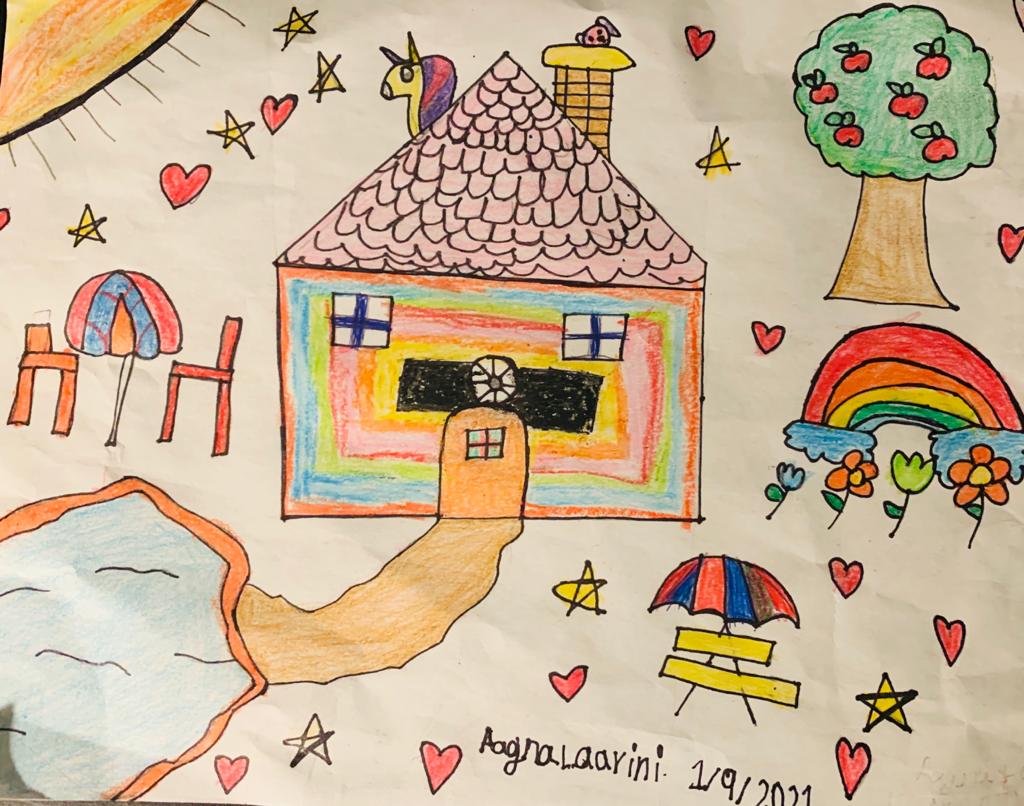 AagnaLaarini. 1/9/2021